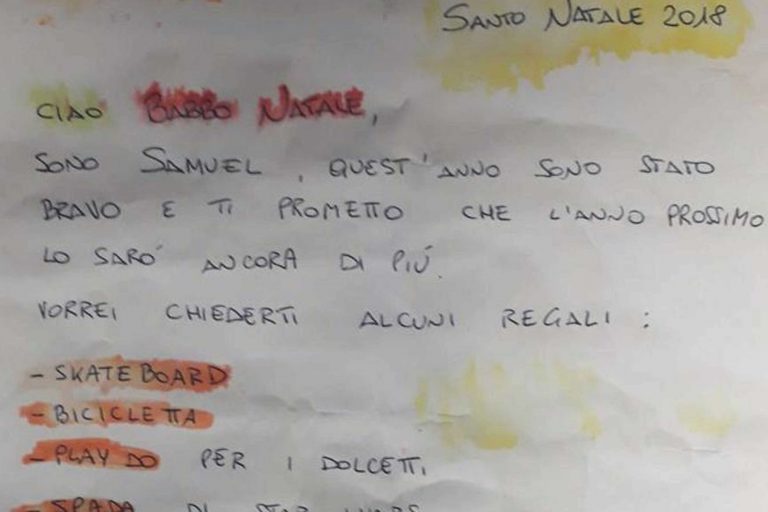 SANTO NATALE 2018
CIAO BABBO NATALE,
SONO SAMUEL, QUEST'ANNO SONO STATO
BRAVO E TI PROMETTO CHE L'ANNO PROSSIMO
LO SARO' ANCORA DI PIÚ.
VORREI CHIEDERTI ALCUNI REGALI:
- SKATEBOARD
- BICICLETTA
- PLAY DO PER I DOLCETTI,
- SPADA DI STAR WARS